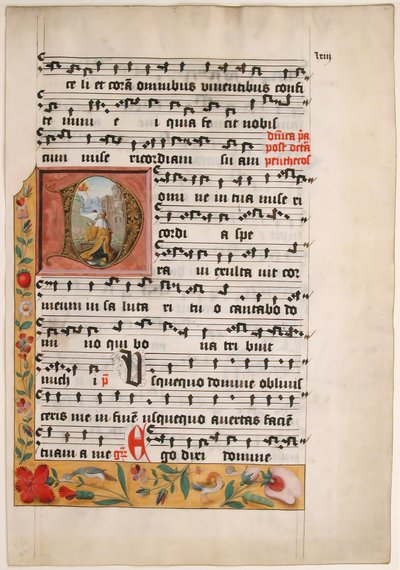 lxiii
te li et corā omnibus viventibus confi
te mini e i quia fe cit nobis
dn̄ica p̄a
cum mise ricordiam su am
post octā
penthecos
D omi ne in tua mise ri
cordi a spe
ra vi exulta vit cor
meum in sa luta ri tu o cantabo do
mi no qui bo na tri buit
mich i p̄ Vsquequo domine oblivis
ceris me in finē usquequo avertas faciē
tuam a me gr̄ Ego dixi domine